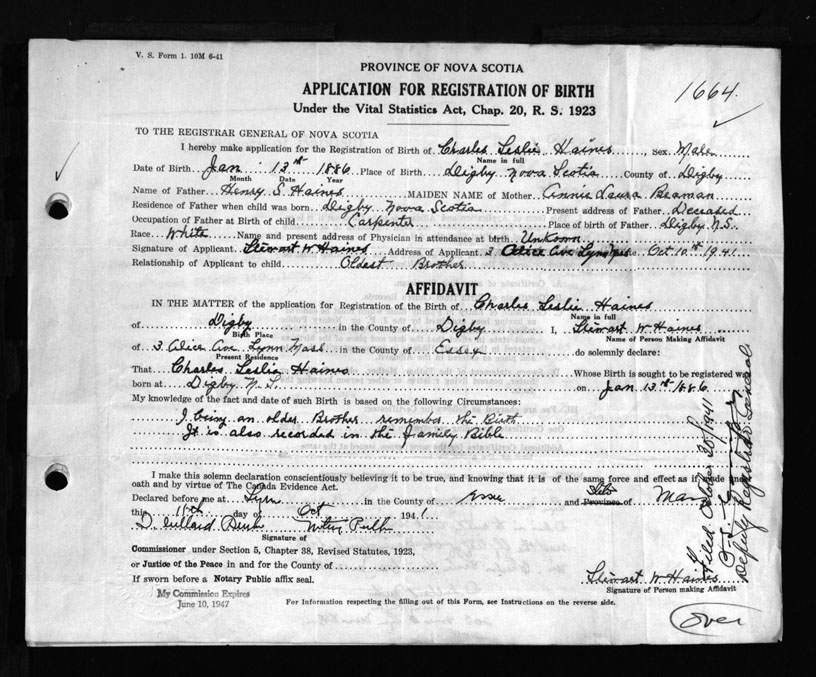 V. S. Form 1. 10M 6-41
PROVINCE OF NOVA SCOTIA
APPLICATION FOR REGISTRATION OF BIRTH
Under the Vital Statistics Act, Chap. 20, R. S. 1923
1664
TO THE REGISTRAR GENERAL OF NOVA SCOTIA
I hereby make application for the Registration of Birth of Charles Leslie Haines Sex Male
Name in full
Date of Birth Jan 13th 1886 Place of Birth Digby Nova Scotia County of Digby
Month Date Year
Name of Father Henry S. Haines MAIDEN NAME of Mother Annie Laura Beaman
Residence of Father when child was born Digby Nova Scotia Present address of Father Deceased
Occupation of Father at Birth of child Carpenter Place of birth of Father Digby N.S.
Race White Name and present address of Physician in attendance at birth Unkown
Signature of Applicant Stewart W Haines Address of Applicant 3 Alice Ave Lynn Mass Date Oct 10th 1941
Relationship of Applicant to child Oldest Brother
AFFIDAVIT
IN THE MATTER of the application for Registration of the Birth of Charles Leslie Haines
Name in full
of Digby in the County of Digby I, Stewart W Haines
Birth Place Name of Person Making Affidavit
of 3 Alice Ave. Lynn Mass in the County of Essex do solemnly declare:
Present Residence
That Charles Leslie Haines Whose Birth is sought to be registered was
born at Digby N.S. on Jan 13th 1886
My knowledge of the fact and date of such Birth is based on the following Circumstances:
I being an older Brother remember the Birth
It is also recorded in the family Bible
I make this solemn declaration conscientiously believing it to be true, and knowing that it is of the same force and effect as if made under
oath and by virtue of The Canada Evidence Act.
Declared before me at Lynn in the County of Essex and Province of Mass
this day of Oct 1941
Notary Public
Signature of
Commissioner under Section 5, Chapter 38, Revised Statutes, 1923,
or Justice of the Peace in and for the County of
If sworn before a Notary Public affix seal.
Stewart W Haines
Signature of Person making Affidavit
My Commission Expires
June 10, 1947
For Information respecting the filling out of this Form, see Instructions on the reverse side.
Over
Filed 1941
Deputy Registrar General